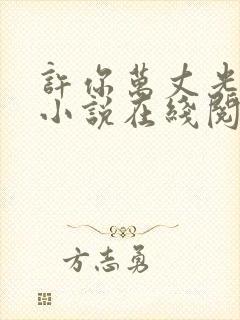 許你萬丈光
小說在綫閱
方志勇